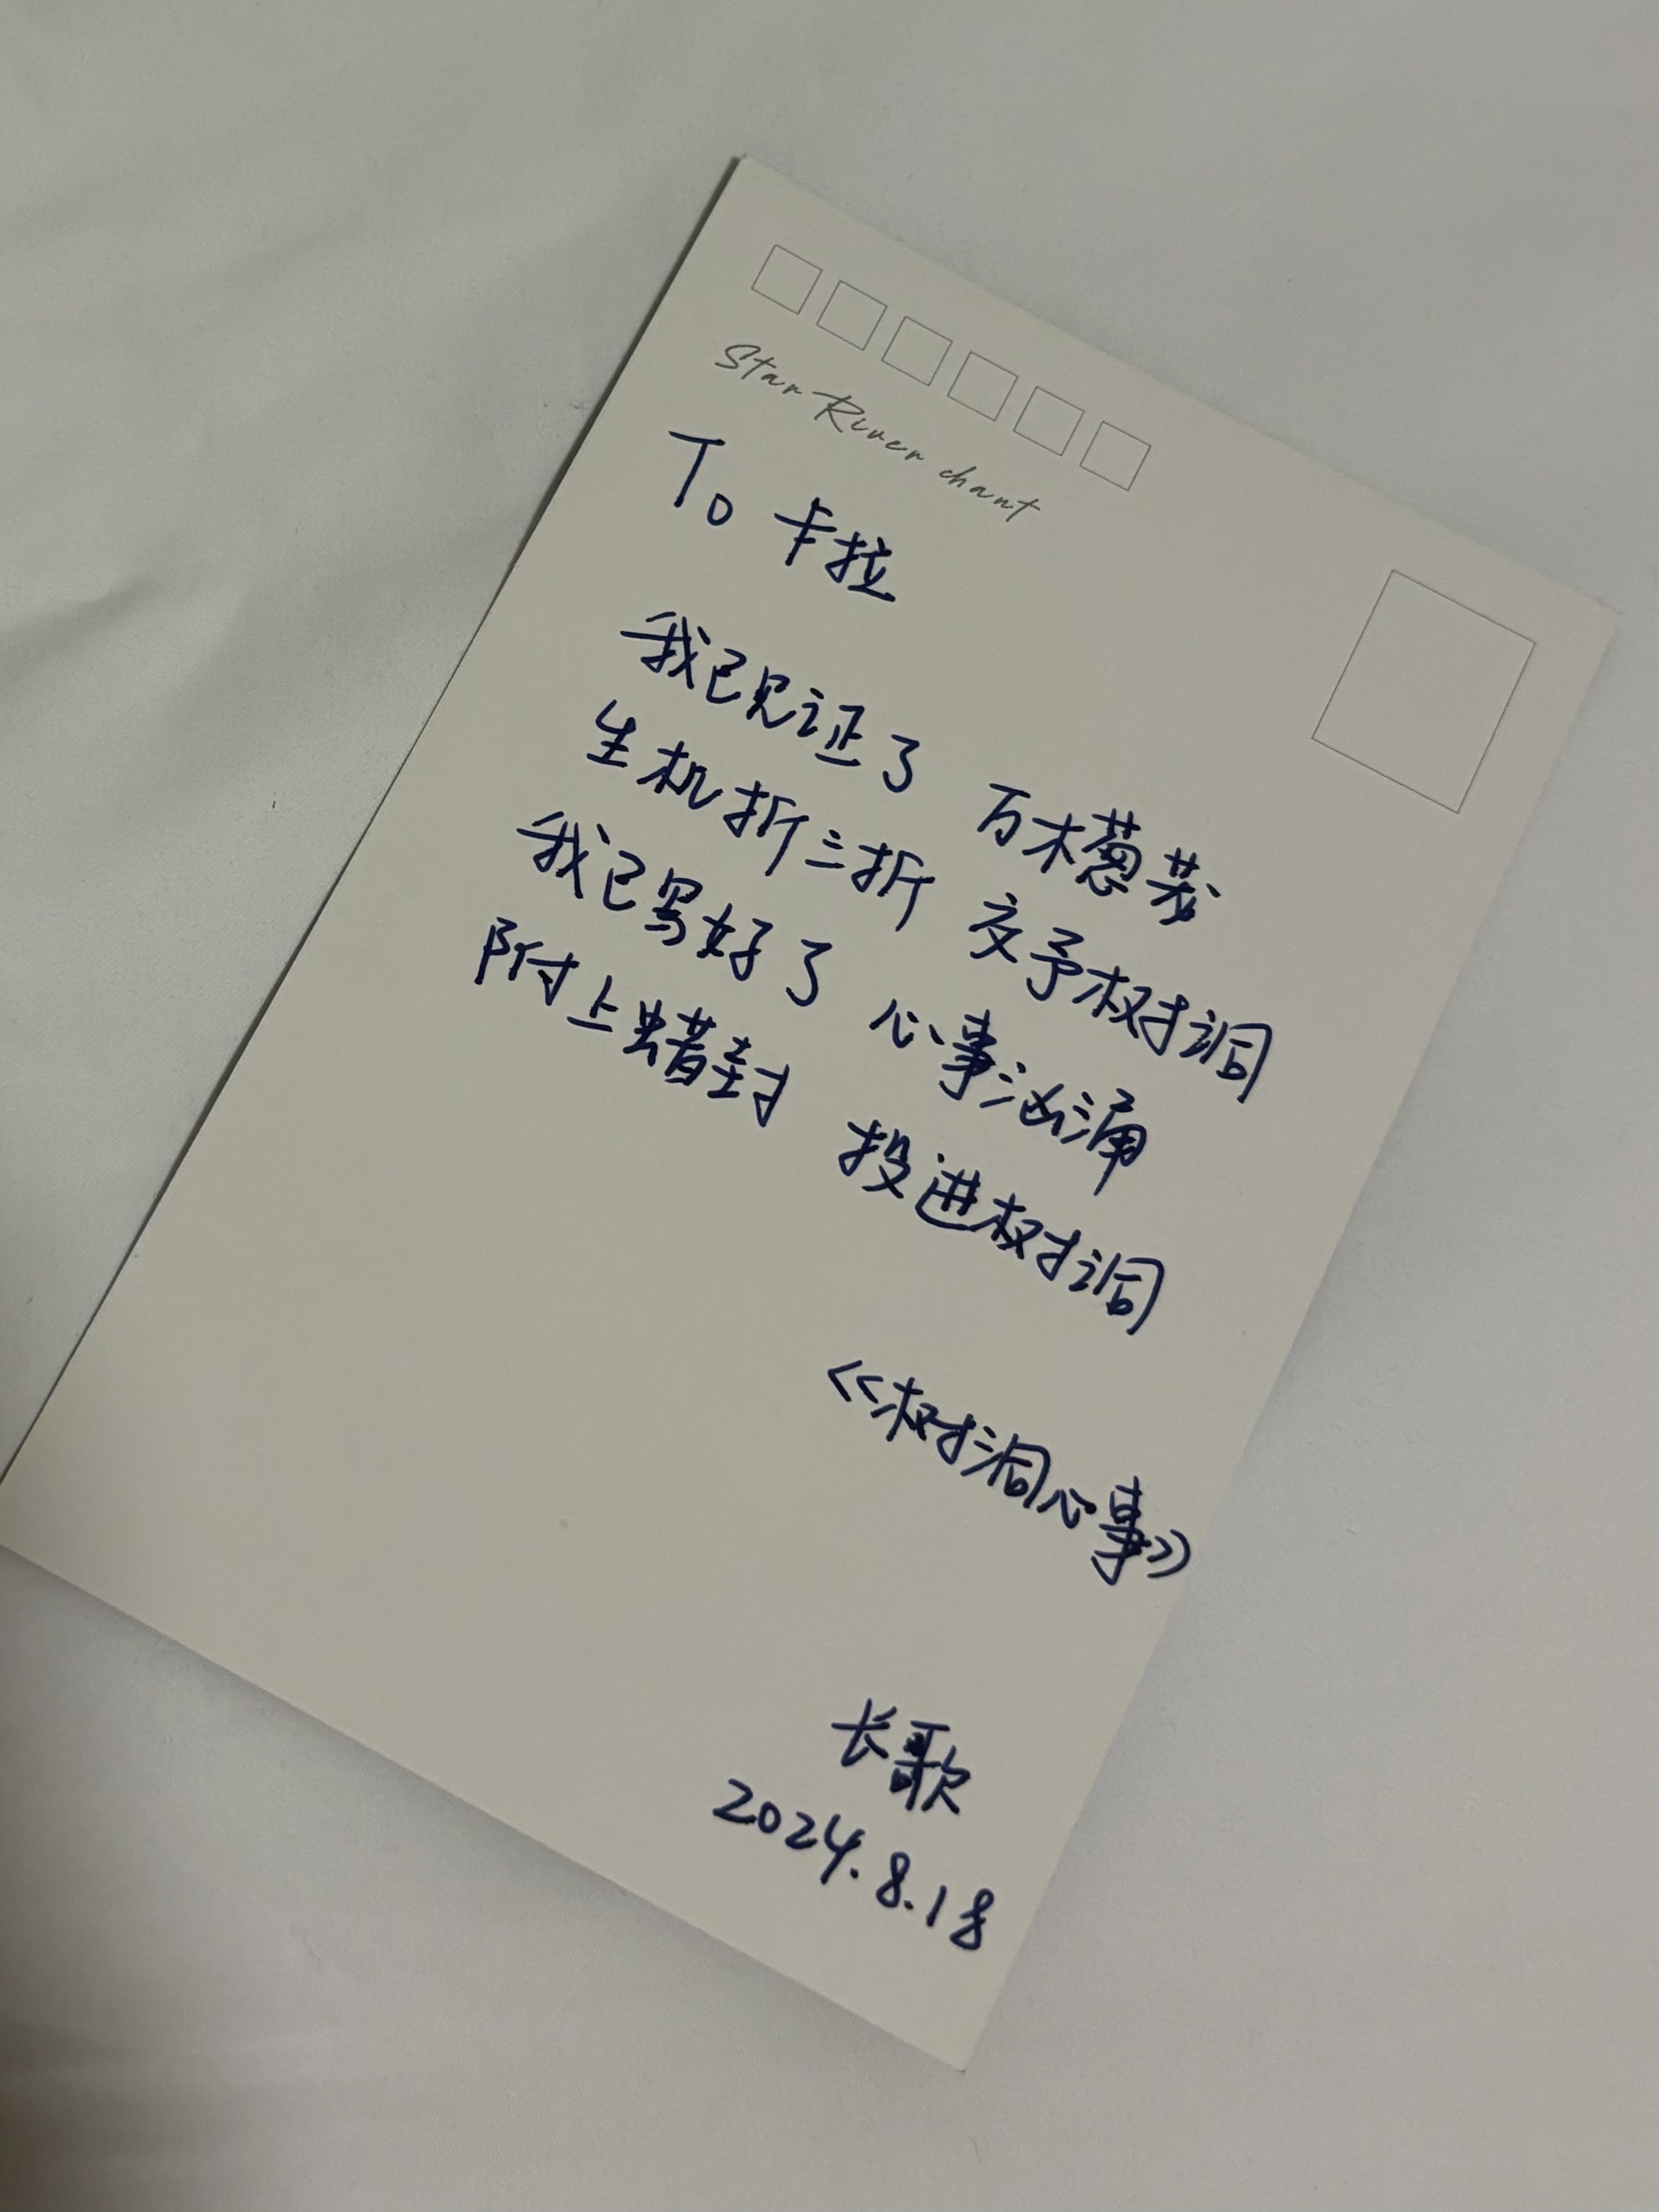 Star River chant
To 卡拉
我已见证了 万木葱茏
生机折三折 交予树洞
我已写好了 心事汹涌
附上蜡封 投进树洞
《树洞心事》
长歌
2024.8.18